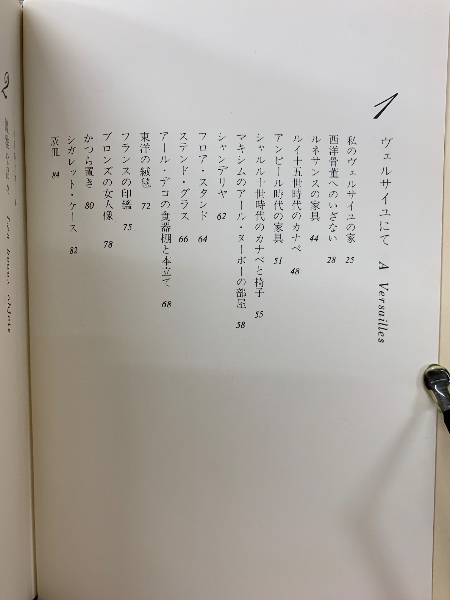 1
ヴェルサイユにて A Versailles
私のヴェルサイユの家 25
西洋骨董へのいざない 28
ルネサンスの家具 44
ルイ十五世時代のカナペ 48
アンピール時代の家具 51
シャルル十世時代のカナペと椅子 55
マキシムのアール・ヌーボーの部屋 58
シャンデリヤ 62
フロア・スタンド 64
ステンド・グラス 66
アール・デコの食器棚と本立て 68
東洋の絨毯 72
フランスの印鑑 75
ブロンズの女人像 78
かつら置き 80
シガレット・ケース 82
灰皿 84
2